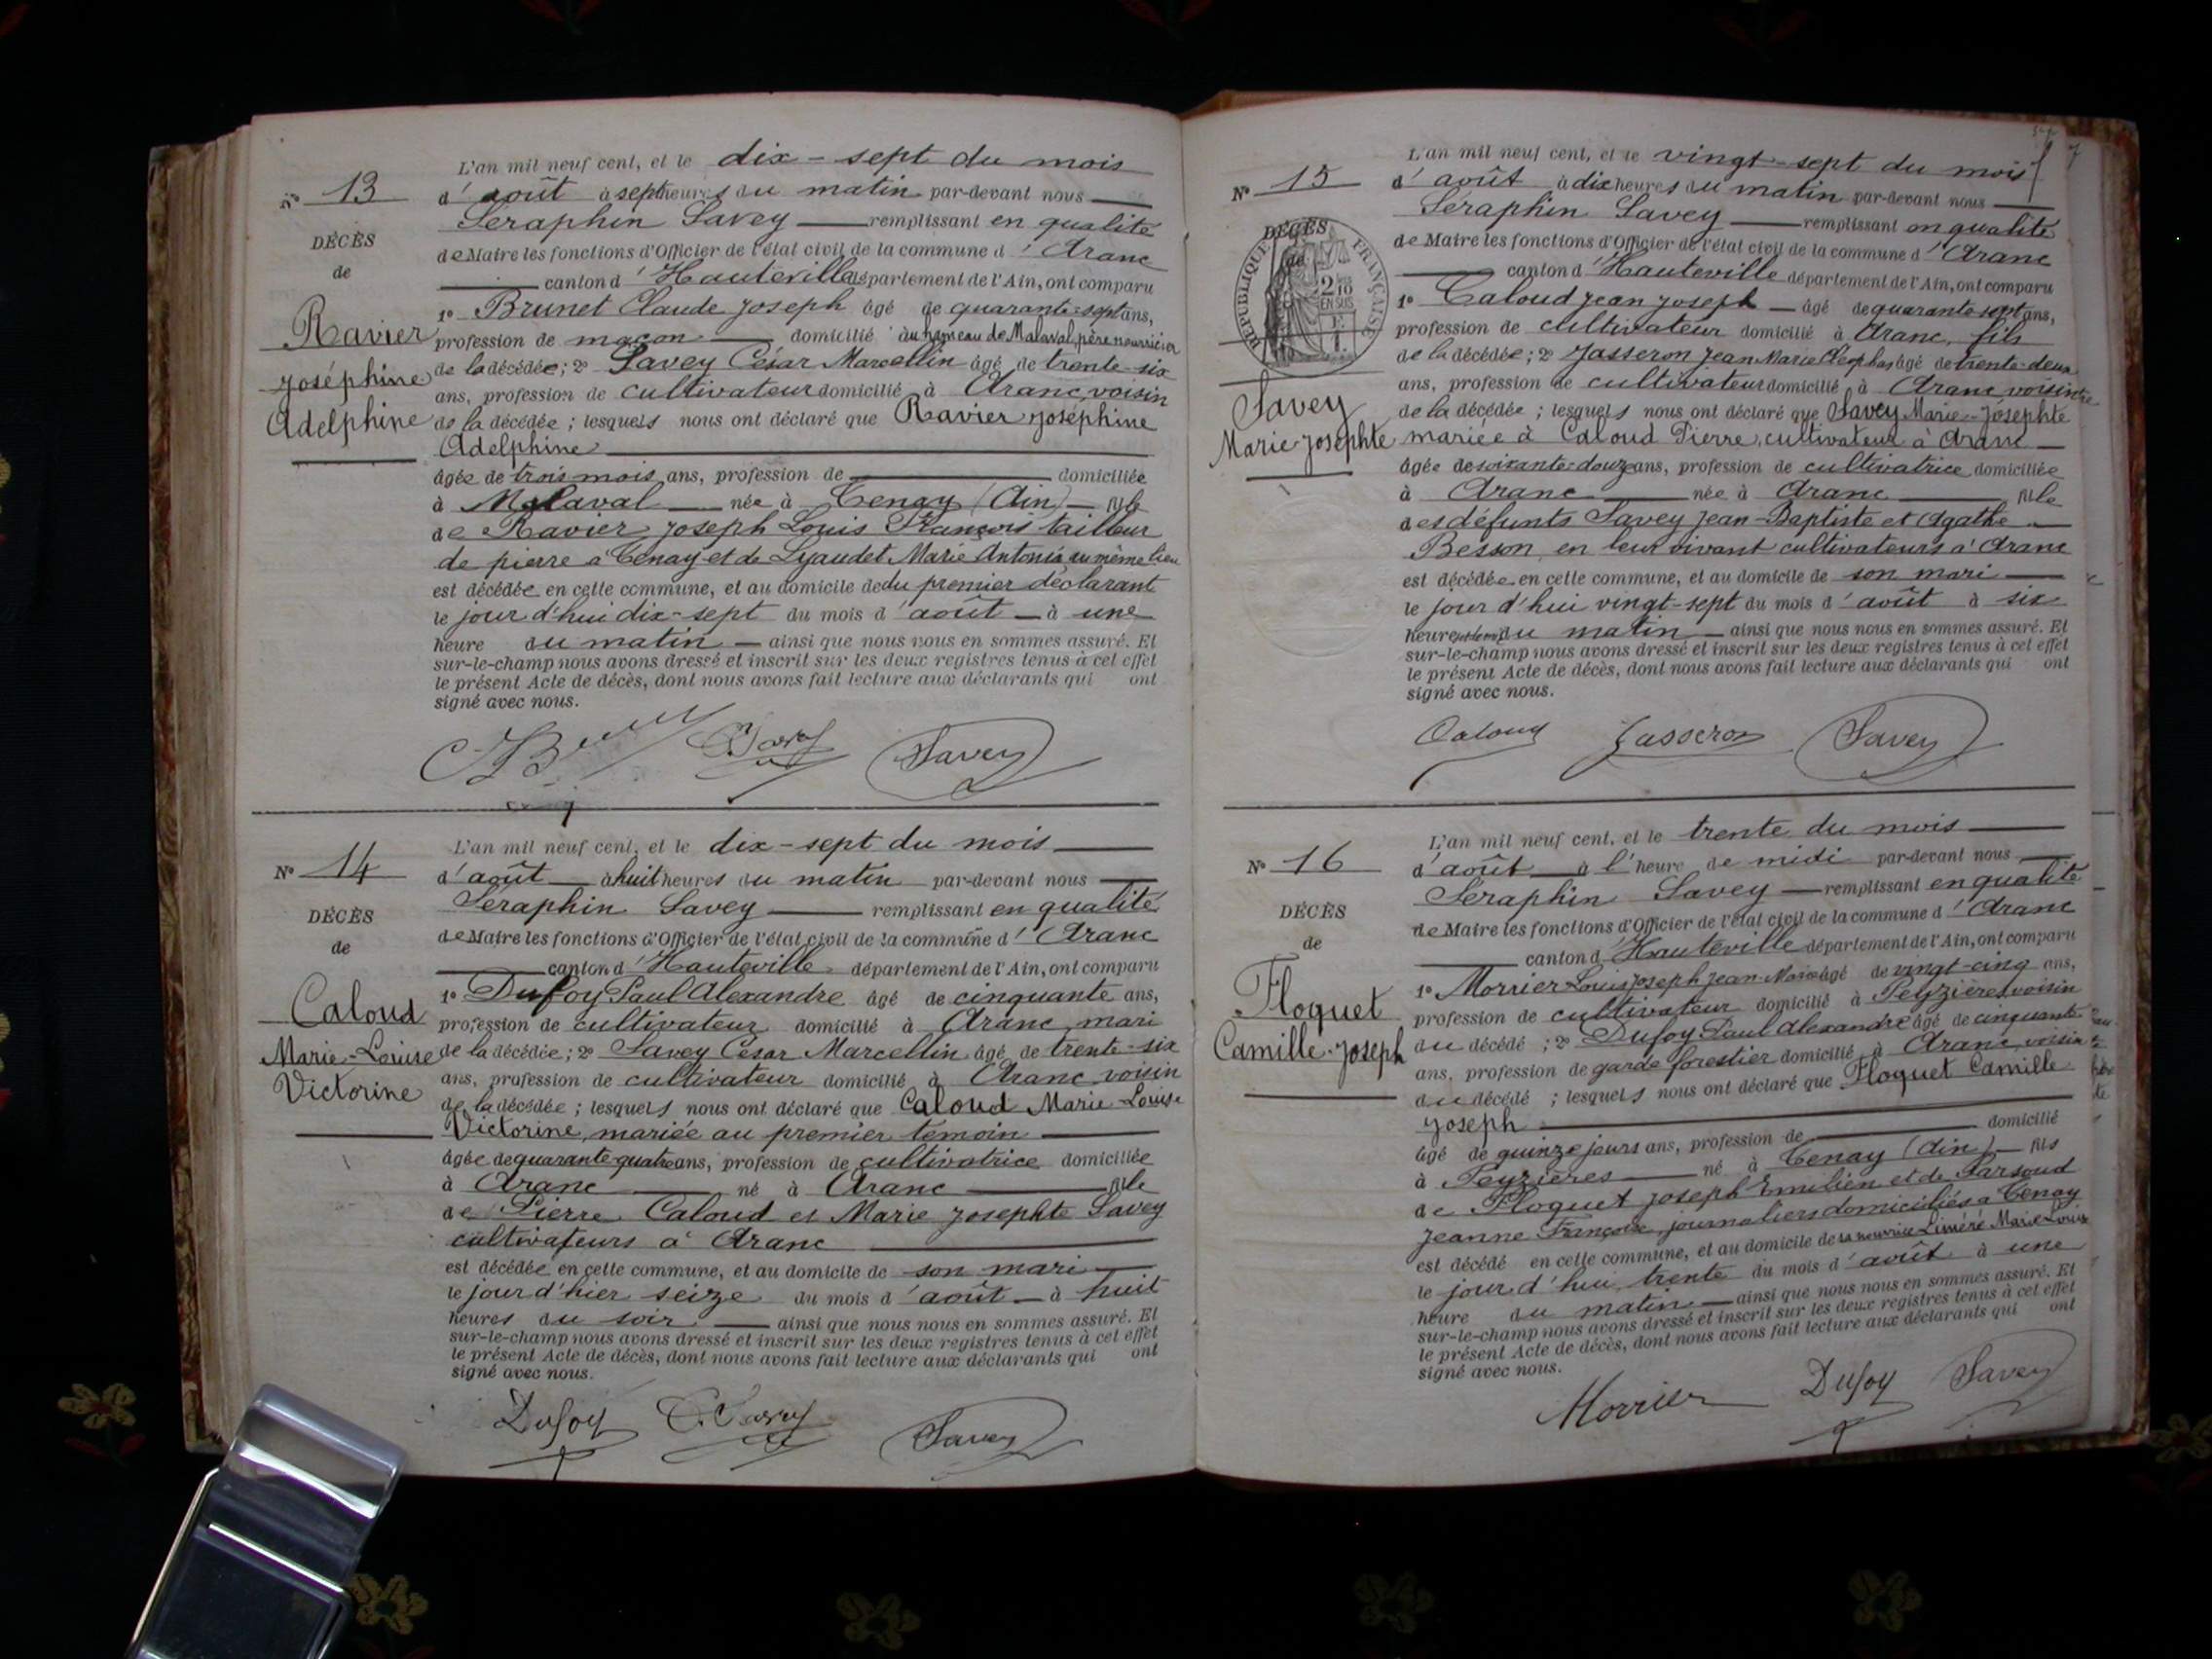 L'an mil neuf cent, et le dix-sept du mois
N° 13
d'août à sept heures du matin par-devant nous
Seraphin Savey remplissant en qualité
DÉCÈS
de Maire les fonctions d'Officier de l'état civil de la commune d'Aranc
de
canton d'Hauteville département de l'Ain, ont comparu
1° Brunet Claude Joseph âgé de quarante-sept ans,
Ravier
profession de maçon domicilié au hameau de Malaval, père nourricier
Joséphine
de la décédée; 2° Savey César Marcellin âgé de trente-six
ans, profession de cultivateur domicilié à Aranc, voisin
Adelphine
de la décédée; lesquels nous ont déclaré que Ravier Joséphine
Adelphine
âgée de trois mois ans, profession de domiciliée
à Malaval née à Tenay (Ain) fille
de Ravier Joseph Louis François tailleur
de pierre à Tenay et de Lyaudet Marie Antonia au même lieu
est décédée en cette commune, et au domicile de du premier déclarant
le jour d'hui dix-sept du mois d'août à une
heure du matin ainsi que nous nous en sommes assuré. Et
sur-le-champ nous avons dressé et inscrit sur les deux registres tenus à cet effet
le présent Acte de décès, dont nous avons fait lecture aux déclarants qui ont
signé avec nous.
Savey
L'an mil neuf cent, et le dix-sept du mois
N° 14
d'août à huit heures du matin par-devant nous
Seraphin Savey remplissant en qualité
DÉCÈS
de Maire les fonctions d'Officier de l'état civil de la commune d'Aranc
de
canton d'Hauteville département de l'Ain, ont comparu
1° Dufoy Paul Alexandre âgé de cinquante ans,
Caloud
profession de cultivateur domicilié à Aranc, mari
Marie-Louise
de la décédée; 2° Savey César Marcellin âgé de trente-six
Victorine
ans, profession de cultivateur domicilié à Aranc, voisin
de la décédée; lesquels nous ont déclaré que Caloud Marie-Louise
Victorine, mariée au premier témoin
âgée de quarante quatre ans, profession de cultivatrice domiciliée
à Aranc né à Aranc fille
de Pierre Caloud et Marie Josephte Savey
cultivateurs à Aranc
est décédée en cette commune, et au domicile de son mari
le jour d'hier seize du mois d'août à huit
heures du soir ainsi que nous nous en sommes assuré. Et
sur-le-champ nous avons dressé et inscrit sur les deux registres tenus à cet effet
le présent Acte de décès, dont nous avons fait lecture aux déclarants qui ont
signé avec nous.
Dufoy Savey
L'an mil neuf cent, et le vingt-sept du mois
N° 15
d'août à dix heures du matin par-devant nous
Séraphin Savey remplissant en qualité
DÉCÈS
de Maire les fonctions d'Officier de l'état civil de la commune d'Aranc
de
RÉPUBLIQUE FRANÇAISE
2/10 EN SUS
canton d'Hauteville département de l'Ain, ont comparu
1° Caloud Jean Joseph âgé de quarante-sept ans,
profession de cultivateur domicilié à Aranc, fils
de la décédée; 2° Jasseron Jean Marie Cléophas âgé de trente-deux
Savey
ans, profession de cultivateur domicilié à Aranc, voisin
de la décédée; lesquels nous ont déclaré que Savey Marie-Josephte
Marie-Josephte
mariée à Caloud Pierre, cultivateur à Aranc
âgée de soixante-douze ans, profession de cultivatrice domiciliée
à Aranc née à Aranc fille
des défunts Savey Jean-Baptiste et Agathe
Besson, en leur vivant cultivateurs à Aranc
est décédée en cette commune, et au domicile de son mari
le jour d'hui vingt-sept du mois d'août à six
heures du matin ainsi que nous nous en sommes assuré. Et
sur-le-champ nous avons dressé et inscrit sur les deux registres tenus à cet effet
le présent Acte de décès, dont nous avons fait lecture aux déclarants qui ont
signé avec nous.
Caloud Jasseron Savey
L'an mil neuf cent, et le trente du mois
N° 16
d'août à l'heure de midi par-devant nous
Séraphin Savey remplissant en qualité
DÉCÈS
de Maire les fonctions d'Officier de l'état civil de la commune d'Aranc
de
canton d'Hauteville département de l'Ain, ont comparu
Floquet
1° Morrier Louis Joseph Jean-Marie âgé de vingt-cinq ans,
profession de cultivateur domicilié à Peyzières, voisin
Camille-Joseph
du décédé; 2° Dufoy Paul Alexandre âgé de cinquante
ans, profession de garde forestier domicilié à Aranc, voisin
du décédé; lesquels nous ont déclaré que Floquet Camille
Joseph
âgé de quinze jours ans, profession de domicilié
à Peyzières né à Tenay (Ain) fils
de Floquet Joseph Emilien et de Parsoud
Jeanne Françoise, journaliers domiciliés à Tenay
est décédé en cette commune, et au domicile de sa nourrice Liméré Marie Louise
le jour d'hui trente du mois d'août à une
heure du matin ainsi que nous nous en sommes assuré. Et
sur-le-champ nous avons dressé et inscrit sur les deux registres tenus à cet effet
le présent Acte de décès, dont nous avons fait lecture aux déclarants qui ont
signé avec nous.
Morrier Dufoy Savey